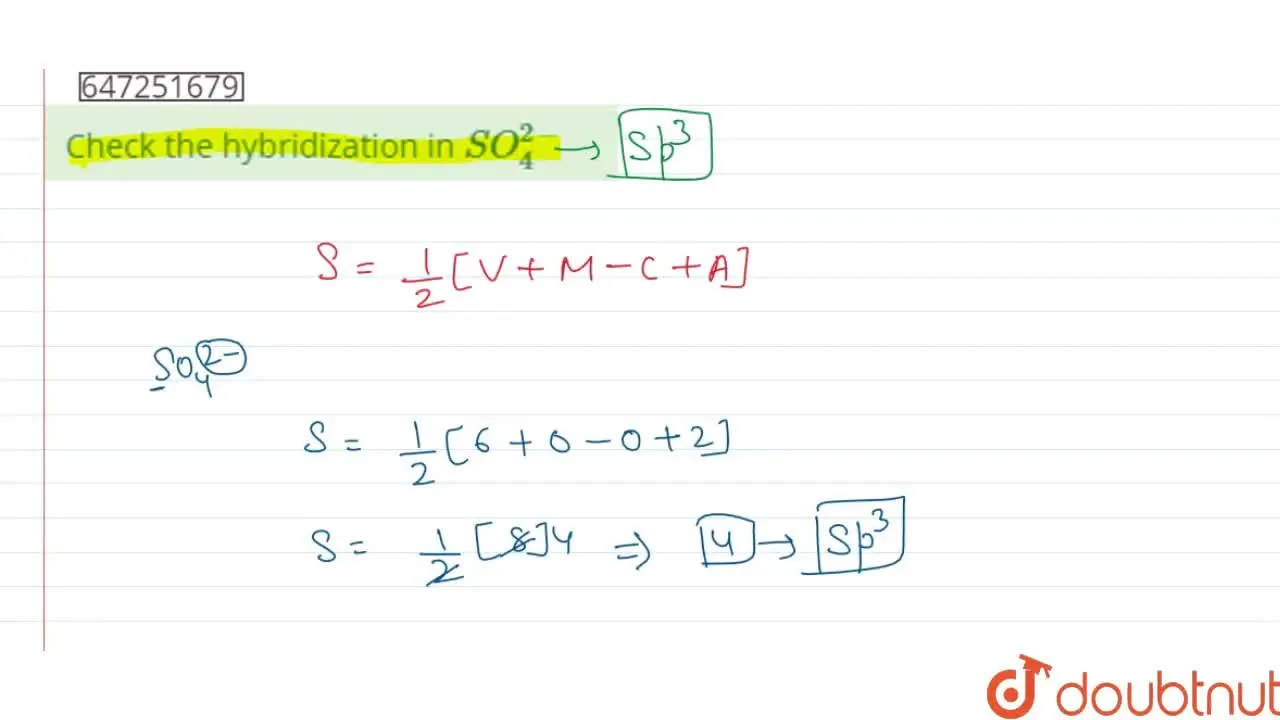 647251679
Check the hybridization in $SO_4^2$ → Sp³
S = 1/2 [V + M - C + A]
SO₄²⁻
S = 1/2 [6 + 0 - 0 + 2]
S = 1/2 [8] 4 ⇒ 4 → Sp³
doubtnut